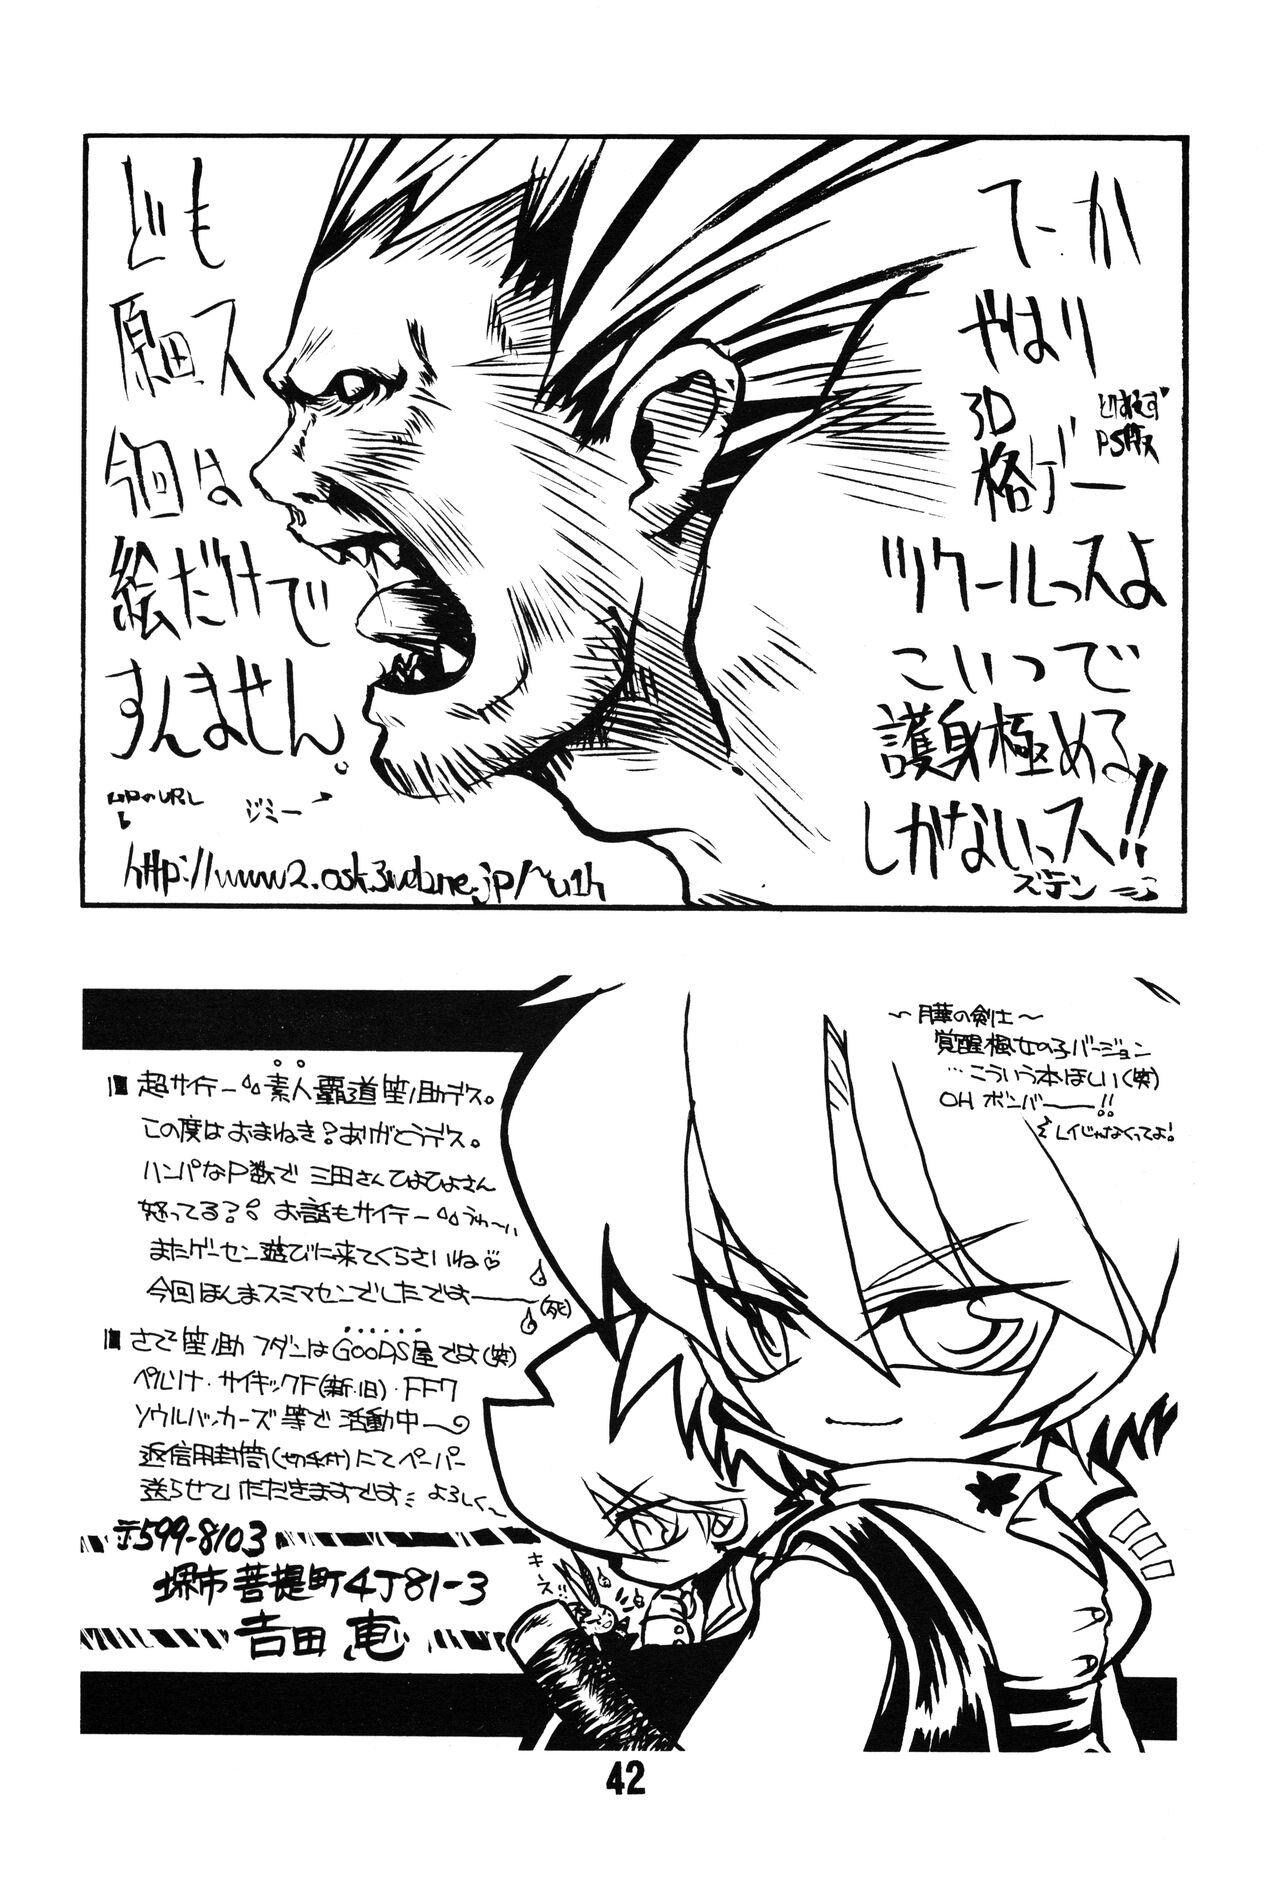 ども
原田ス
今回は
絵だけで
すんません。
ジミー
http://www2.osk.3web.ne.jp/~u1h
てーか
やはり
3D
格ゲー
PS版
ツクールっスよ
こいつで
護身極める
しがないっス!!
ズデン
〜月華の剣士〜
覚醒楓女の子バージョン
…こういう本ほしい(笑)
OH ボンバー――!!
レイじゃなくってよ!
超サイテー 素人覇道笙ノ助デス。
この度はおまねき?ありがとうデス。
ハンパなP数で 三田さんてはてよさん
怒ってる?? お話もサイテー うわ〜
またゲーセン遊びに来てくらさいね♡
今回ほんまスミマセンでしたですー――(死)
さて笙ノ助 フダンはGOODS屋です(笑)
ペルソナ・サイキックF(新・旧)・FF7
ソウルハッカーズ 等で 活動中〜
返信用封筒(切手付)にてペーパー
送らせていただきますです よろしく〜
〒599-8103
堺市菩提町4丁81-3
吉田 恵
キーズ
42